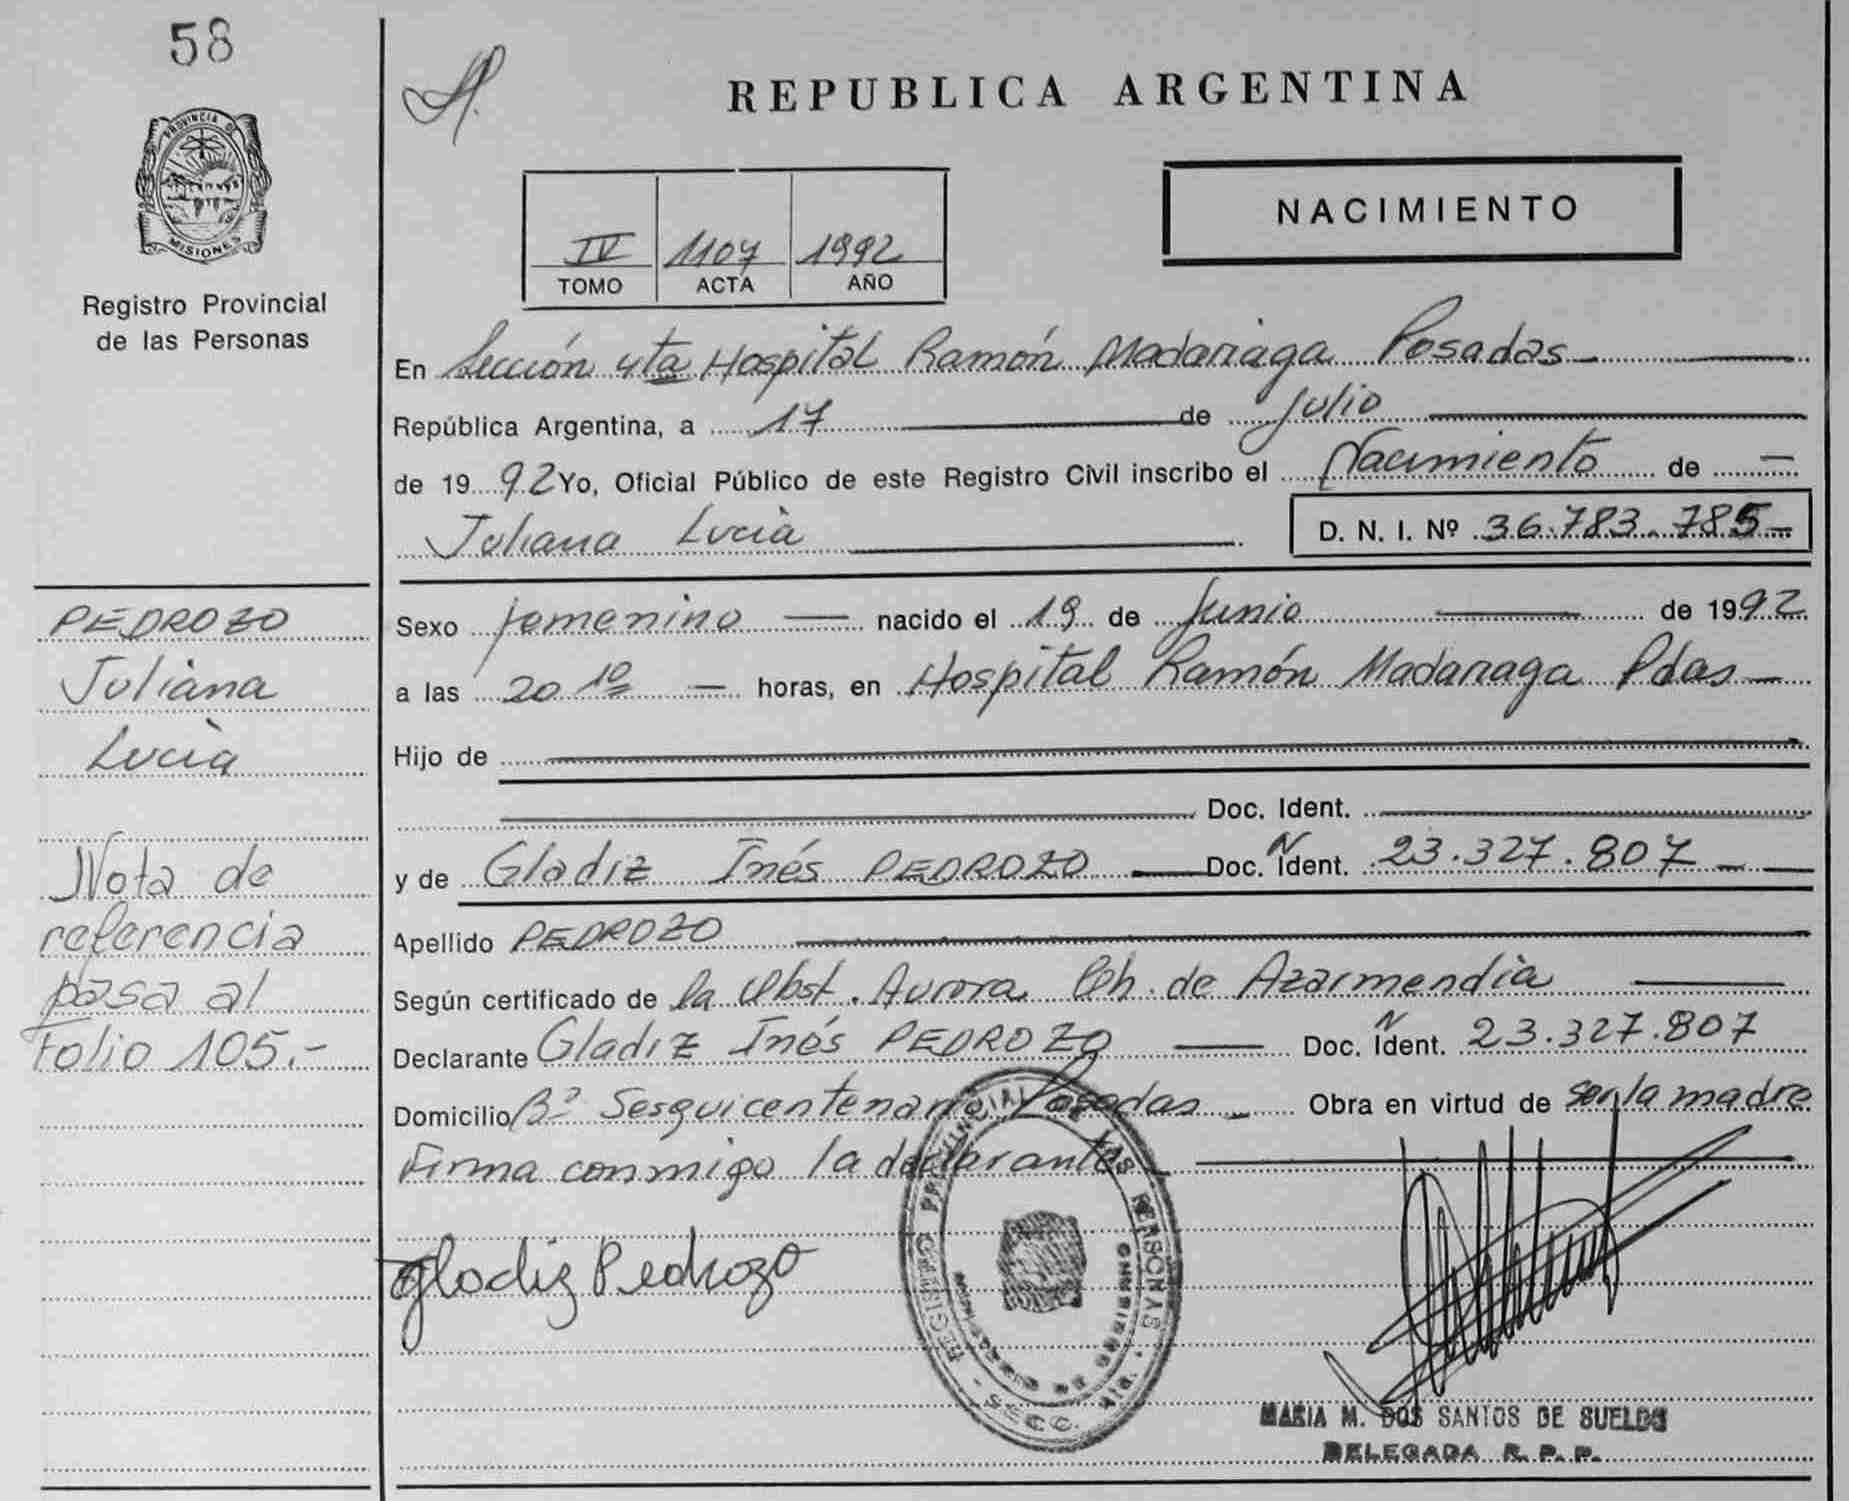 58
PROVINCIA DE
MISIONES
Registro Provincial
de las Personas
REPUBLICA ARGENTINA
NACIMIENTO
IV 1107 1992
TOMO ACTA AÑO
En Sección 4ta Hospital Ramón Madariaga Posadas
República Argentina, a 17 de Julio
de 1992 Yo, Oficial Público de este Registro Civil inscribo el Nacimiento de —
Juliana Lucia D. N. I. Nº 36.783.785-
PEDROZO
Juliana
Lucia
Nota de
referencia
pasa al
Folio 105.-
Sexo femenino — nacido el 19 de Junio de 1992
a las 20 10 — horas, en Hospital Ramón Madariaga Pdas —
Hijo de
Doc. Ident.
y de Gladiz Inés PEDROZO — Doc. N Ident. 23.327.807 —
Apellido PEDROZO
Según certificado de la Obst. Aurora Ch. de Azarmendia
Declarante Gladiz Inés PEDROZO — Doc. N Ident. 23.327.807
Domicilio Bº Sesquicentenario Posadas — Obra en virtud de ser la madre
Firma conmigo la declarante
Gladiz Pedrozo
REGISTRO PROVINCIAL DE LAS PERSONAS
SECC. 4ta.
MARIA M. DOS SANTOS DE SUELDO
DELEGADA R. P. P.